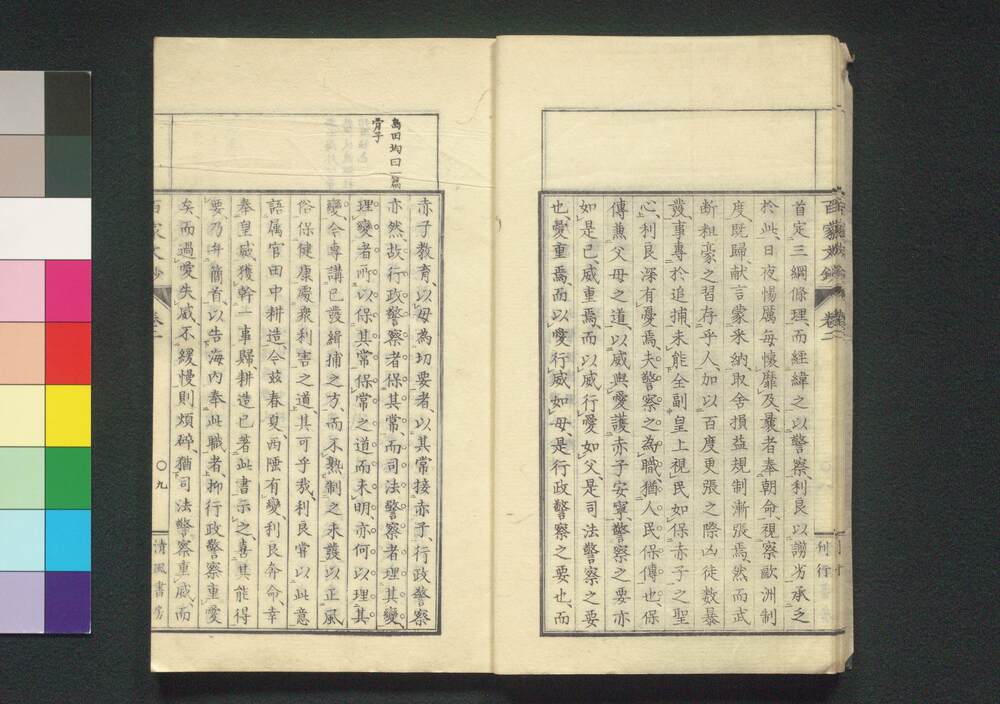 首定三綱條理、而經緯之以警察、利良以謭劣承之
於此、日夜惕厲每懷靡及、曩者奉朝命、視察歐洲制
度、既歸、献言蒙釆納、取舍損益規制漸張焉、然而武
断粗豪之習存乎人、加以百度更張之際凶徒数暴
發、事專於追捕未能全副皇上視民如保赤子之聖
心、利良深有憂焉、夫警察之為職、猶人民保傳也、保
傳兼父母之道、以威與愛護赤子安寧、警察之要亦
如是已、威重焉、而以威行愛如父是司法警察之要
也、愛重焉、而以愛行威如母是行政警察之要也、而
百家文鈔
卷二
刊行
島田均曰一篇
骨子
赤子教育、以母為切要者、以其常接赤子、行政警察
亦然故行政警察者保其常、而司法警察者理其變、
理變者所以保其常、保常之道而未明、亦何以理其
變、今專講已發緝捕之方、而不熟制之未護以正風
俗保健康慮衆利害之道、其可乎哉、利良嘗以此意
語属官田中耕造、今茲春夏、西陲有變、利良奔命、幸
奉皇威、獲幹一事歸、耕造已著此書示之、喜其能得
要、乃弁簡首、以告海內奉此職者、抑行政警察重愛
矣、而過愛失威、不緩慢則煩碎、猶司法警察重威、而
百家文鈔
卷二
〇九
清風書房